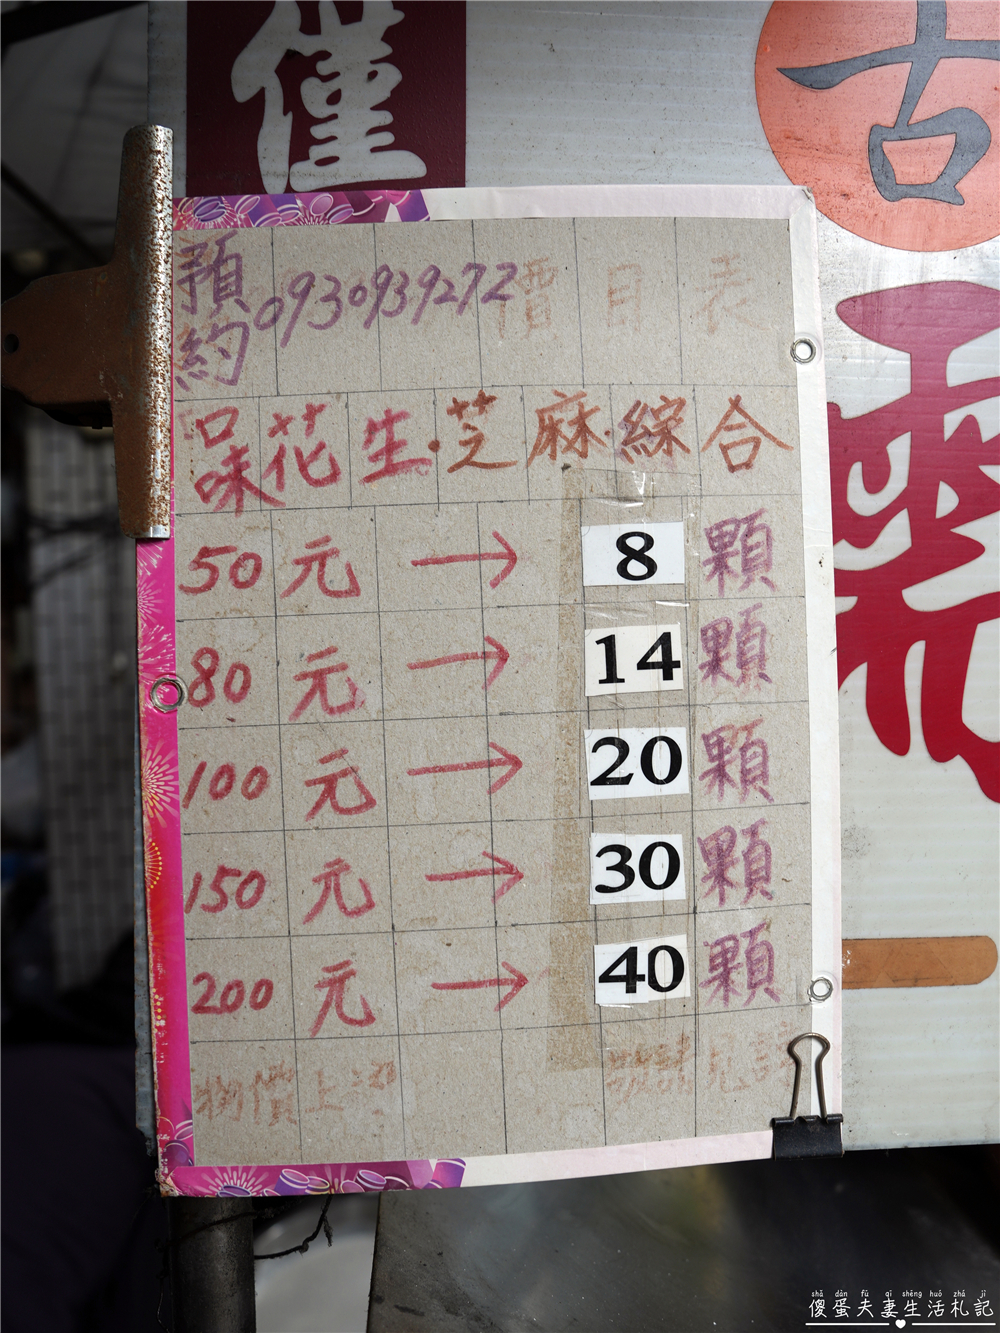 僅
古
預約0930939272 價目表
口味花生·芝麻·綜合
50元→8顆
80元→14顆
100元→20顆
150元→30顆
200元→40顆
物價上漲 見諒
shǎ dàn fū qī shēng huó zhá jì
傻蛋夫妻生活札記